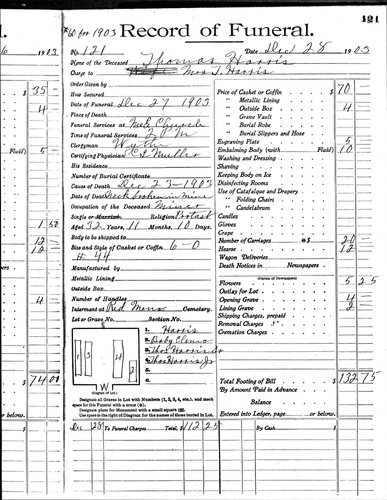 121
#60 for 1903 Record of Funeral.
6 1903
No. 121 Date Dec 28 1903
Name of the Deceased Thomas Harris
Charge to Mrs T. Harris
Order Given by
How Secured
Date of Funeral Dec 27 1903
Place of Death
Funeral Services at Meth Church
Time of Funeral Services 2 PM
Clergyman
Certifying Physician C L Muller
His Residence
Number of Burial Certificate
Cause of Death Dec 23 - 1903
Date of Death Neck broken in Mine
Occupation of the Deceased Miner
Single or Married Religion Protest
Aged 32 Years, 11 Months, 10 Days,
Body to be shipped to
Size and Style of Casket or Coffin 6-0
# 44
Manufactured by
Metallic Lining
Outside Box
Number of Handles
Interment at Red Mens Cemetery.
Lot or Grave No. Section No.
1. Harris
2. Baby Elmo
3. Thos Harris Sr
4. Thos Harris Jr
5.
6.
W
(Diagram of Lot.)
Designate all Graves in Lot with Numbers (1, 2, 3, 4, etc.), and mark space for this Funeral with a cross (x).
Designate place for Monument with a small square
Use space to the right of Diagram for the names of those buried in Lot.
Price of Casket or Coffin $ 70
" Metallic Lining
" Outside Box 4
" Grave Vault
" Burial Robe
" Burial Slippers and Hose
Engraving Plate 5
Embalming Body (with Fluid) 10
Washing and Dressing
Shaving
Keeping Body on Ice
Disinfecting Rooms
Use of Catafalque and Drapery
" Folding Chairs
" Candelabrum
Candles
Gloves
Crape
Number of Carriages @$ 20
Hearse 12
Wagon Deliveries
Death Notices in Newspapers
Flowers 5 25
Outlay for Lot
Opening Grave 4
Lining Grave 2
Shipping Charges, prepaid
Removal Charges
Cremation Charges
Total Footing of Bill $ 132 75
By Amount Paid in Advance
Balance
Entered into Ledger, page or below.
Dec 28 To Funeral Charges Total, $ 112 25 By Cash $
$ 35
4
Fluid) 5
1 50
12
12
4
$ 74 00
or below.
$